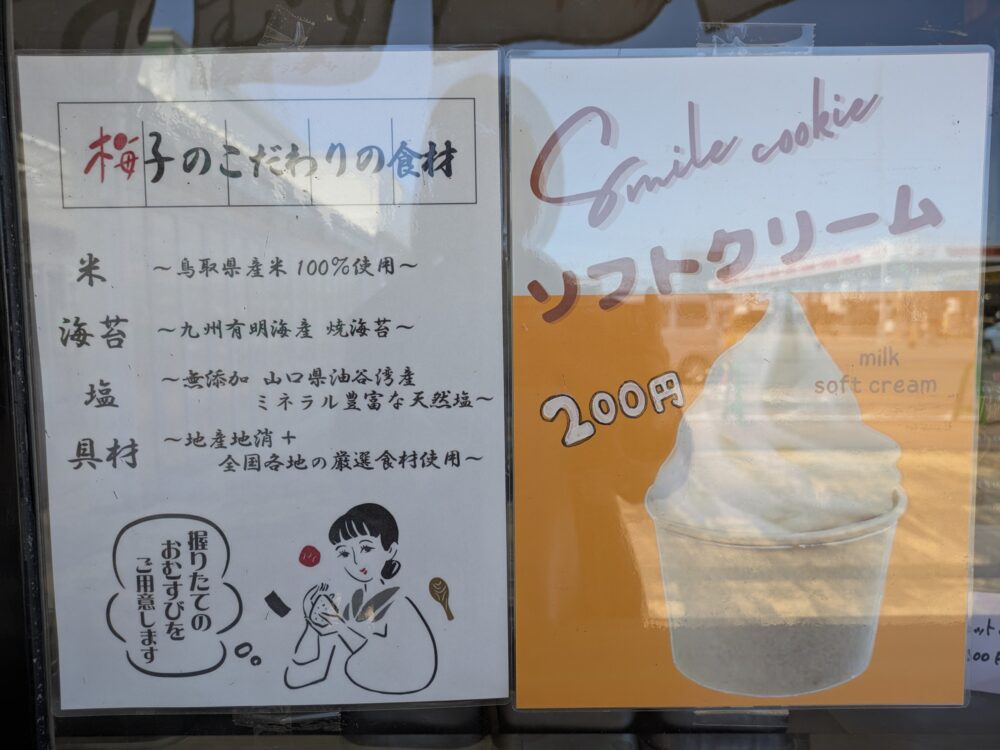 梅子のこだわりの食材
米 ～鳥取県産米100％使用～
海苔 ～九州有明海産 焼海苔～
塩 ～無添加 山口県油谷湾産
ミネラル豊富な天然塩～
具材 ～地産地消＋
全国各地の厳選食材使用～
握りたての
おむすびを
ご用意します
Smile cookie
ソフトクリーム
200円
milk
soft cream